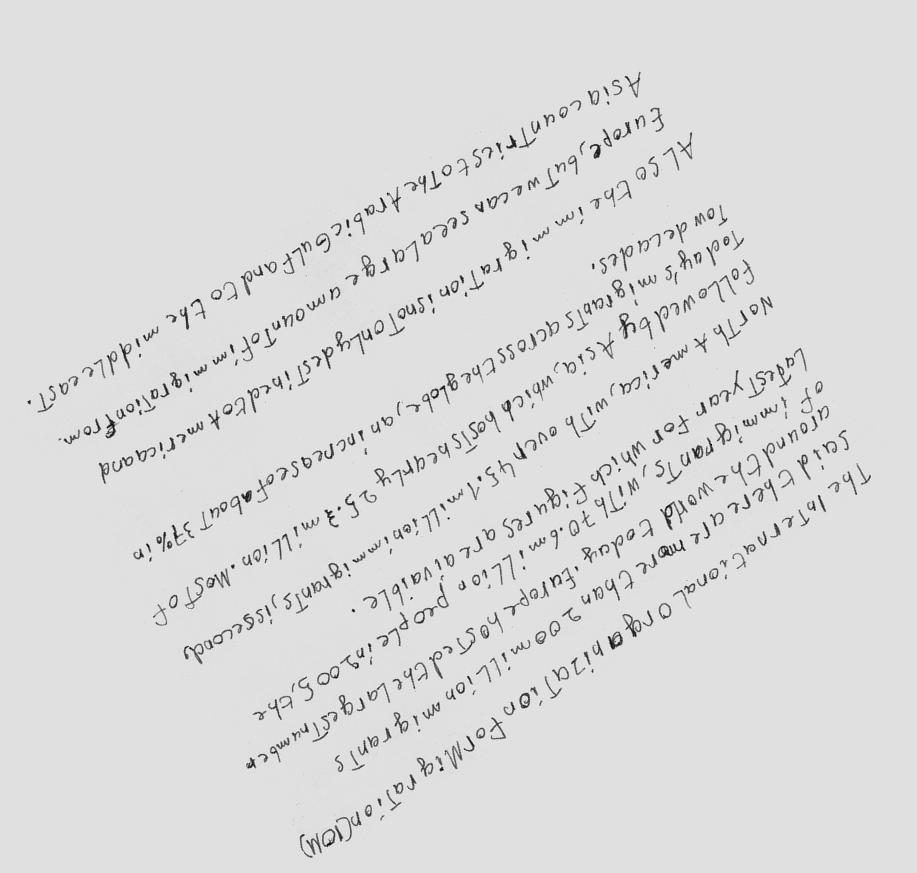 The International Organization For Migration(IOM)
said there are more than 200 million migrants
around the world today. Europe hosted the largest number
of immigrants, with 70.6 million people in 2005, the
Latest year for which figures are aivaible.
North America, with over 45.1 million immigrants, is second,
followed by Asia, which hosts nearly 25.3 million. Most of
Today's migrants across the globe, an increase of about 37% in
Tow decades.
ALso the immigration is not only destined to America and
Europe, but we can see a large amount of immigration from.
Asia countries to The Arabic Gulf and to the middle east.